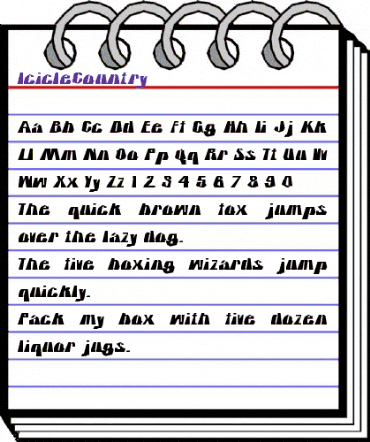 IcicleCountry
Aa Bb Cc Dd Ee Ff Gg Hh Ii Jj Kk
Ll Mm Nn Oo Pp Qq Rr Ss Tt Uu Vv
Ww Xx Yy Zz 1 2 3 4 5 6 7 8 9 0
The quick brown fox jumps
over the lazy dog.
The five boxing wizards jump
quickly.
Pack my box with five dozen
liquor jugs.